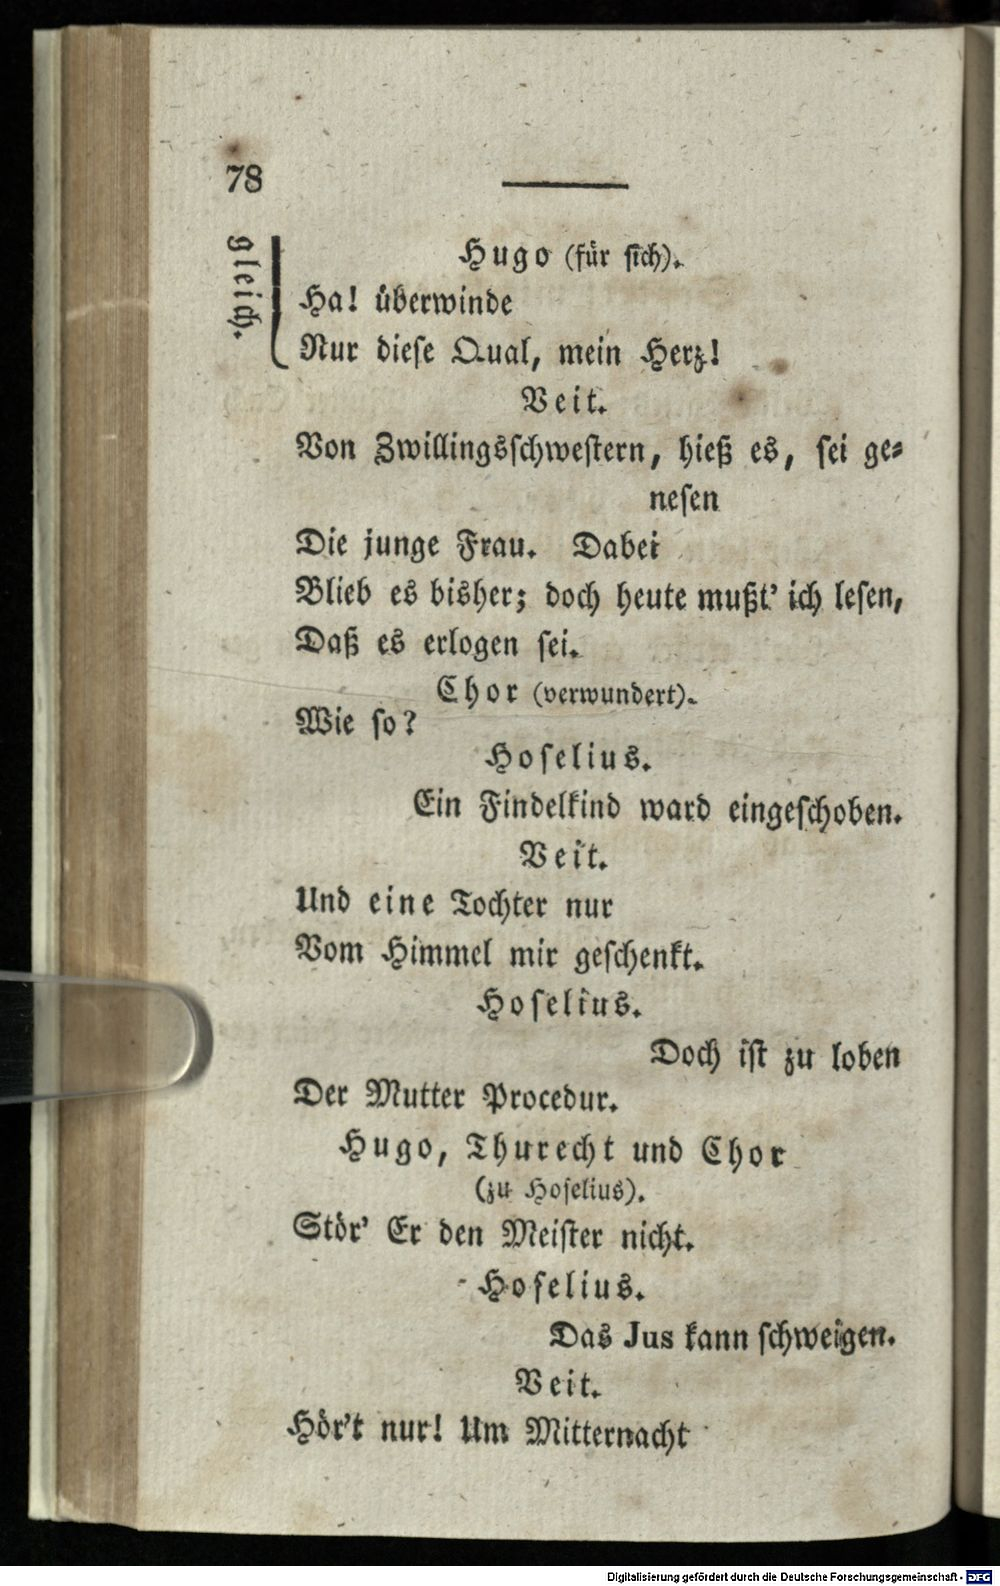 78
gleich.
Hugo (für sich).
Ha! überwinde
Nur diese Qual, mein Herz!
Veit.
Von Zwillingsschwestern, hieß es, sei ge-
nesen
Die junge Frau. Dabei
Blieb es bisher; doch heute mußt' ich lesen,
Daß es erlogen sei.
Chor (verwundert).
Wie so?
Hoselius.
Ein Findelkind ward eingeschoben.
Veit.
Und eine Tochter nur
Vom Himmel mir geschenkt.
Hoselius.
Doch ist zu loben
Der Mutter Procedur.
Hugo, Thurecht und Chor
(zu Hoselius).
Stör' Er den Meister nicht.
Hoselius.
Das Jus kann schweigen.
Veit.
Hör't nur! Um Mitternacht
Digitalisierung gefördert durch die Deutsche Forschungsgemeinschaft - DFG